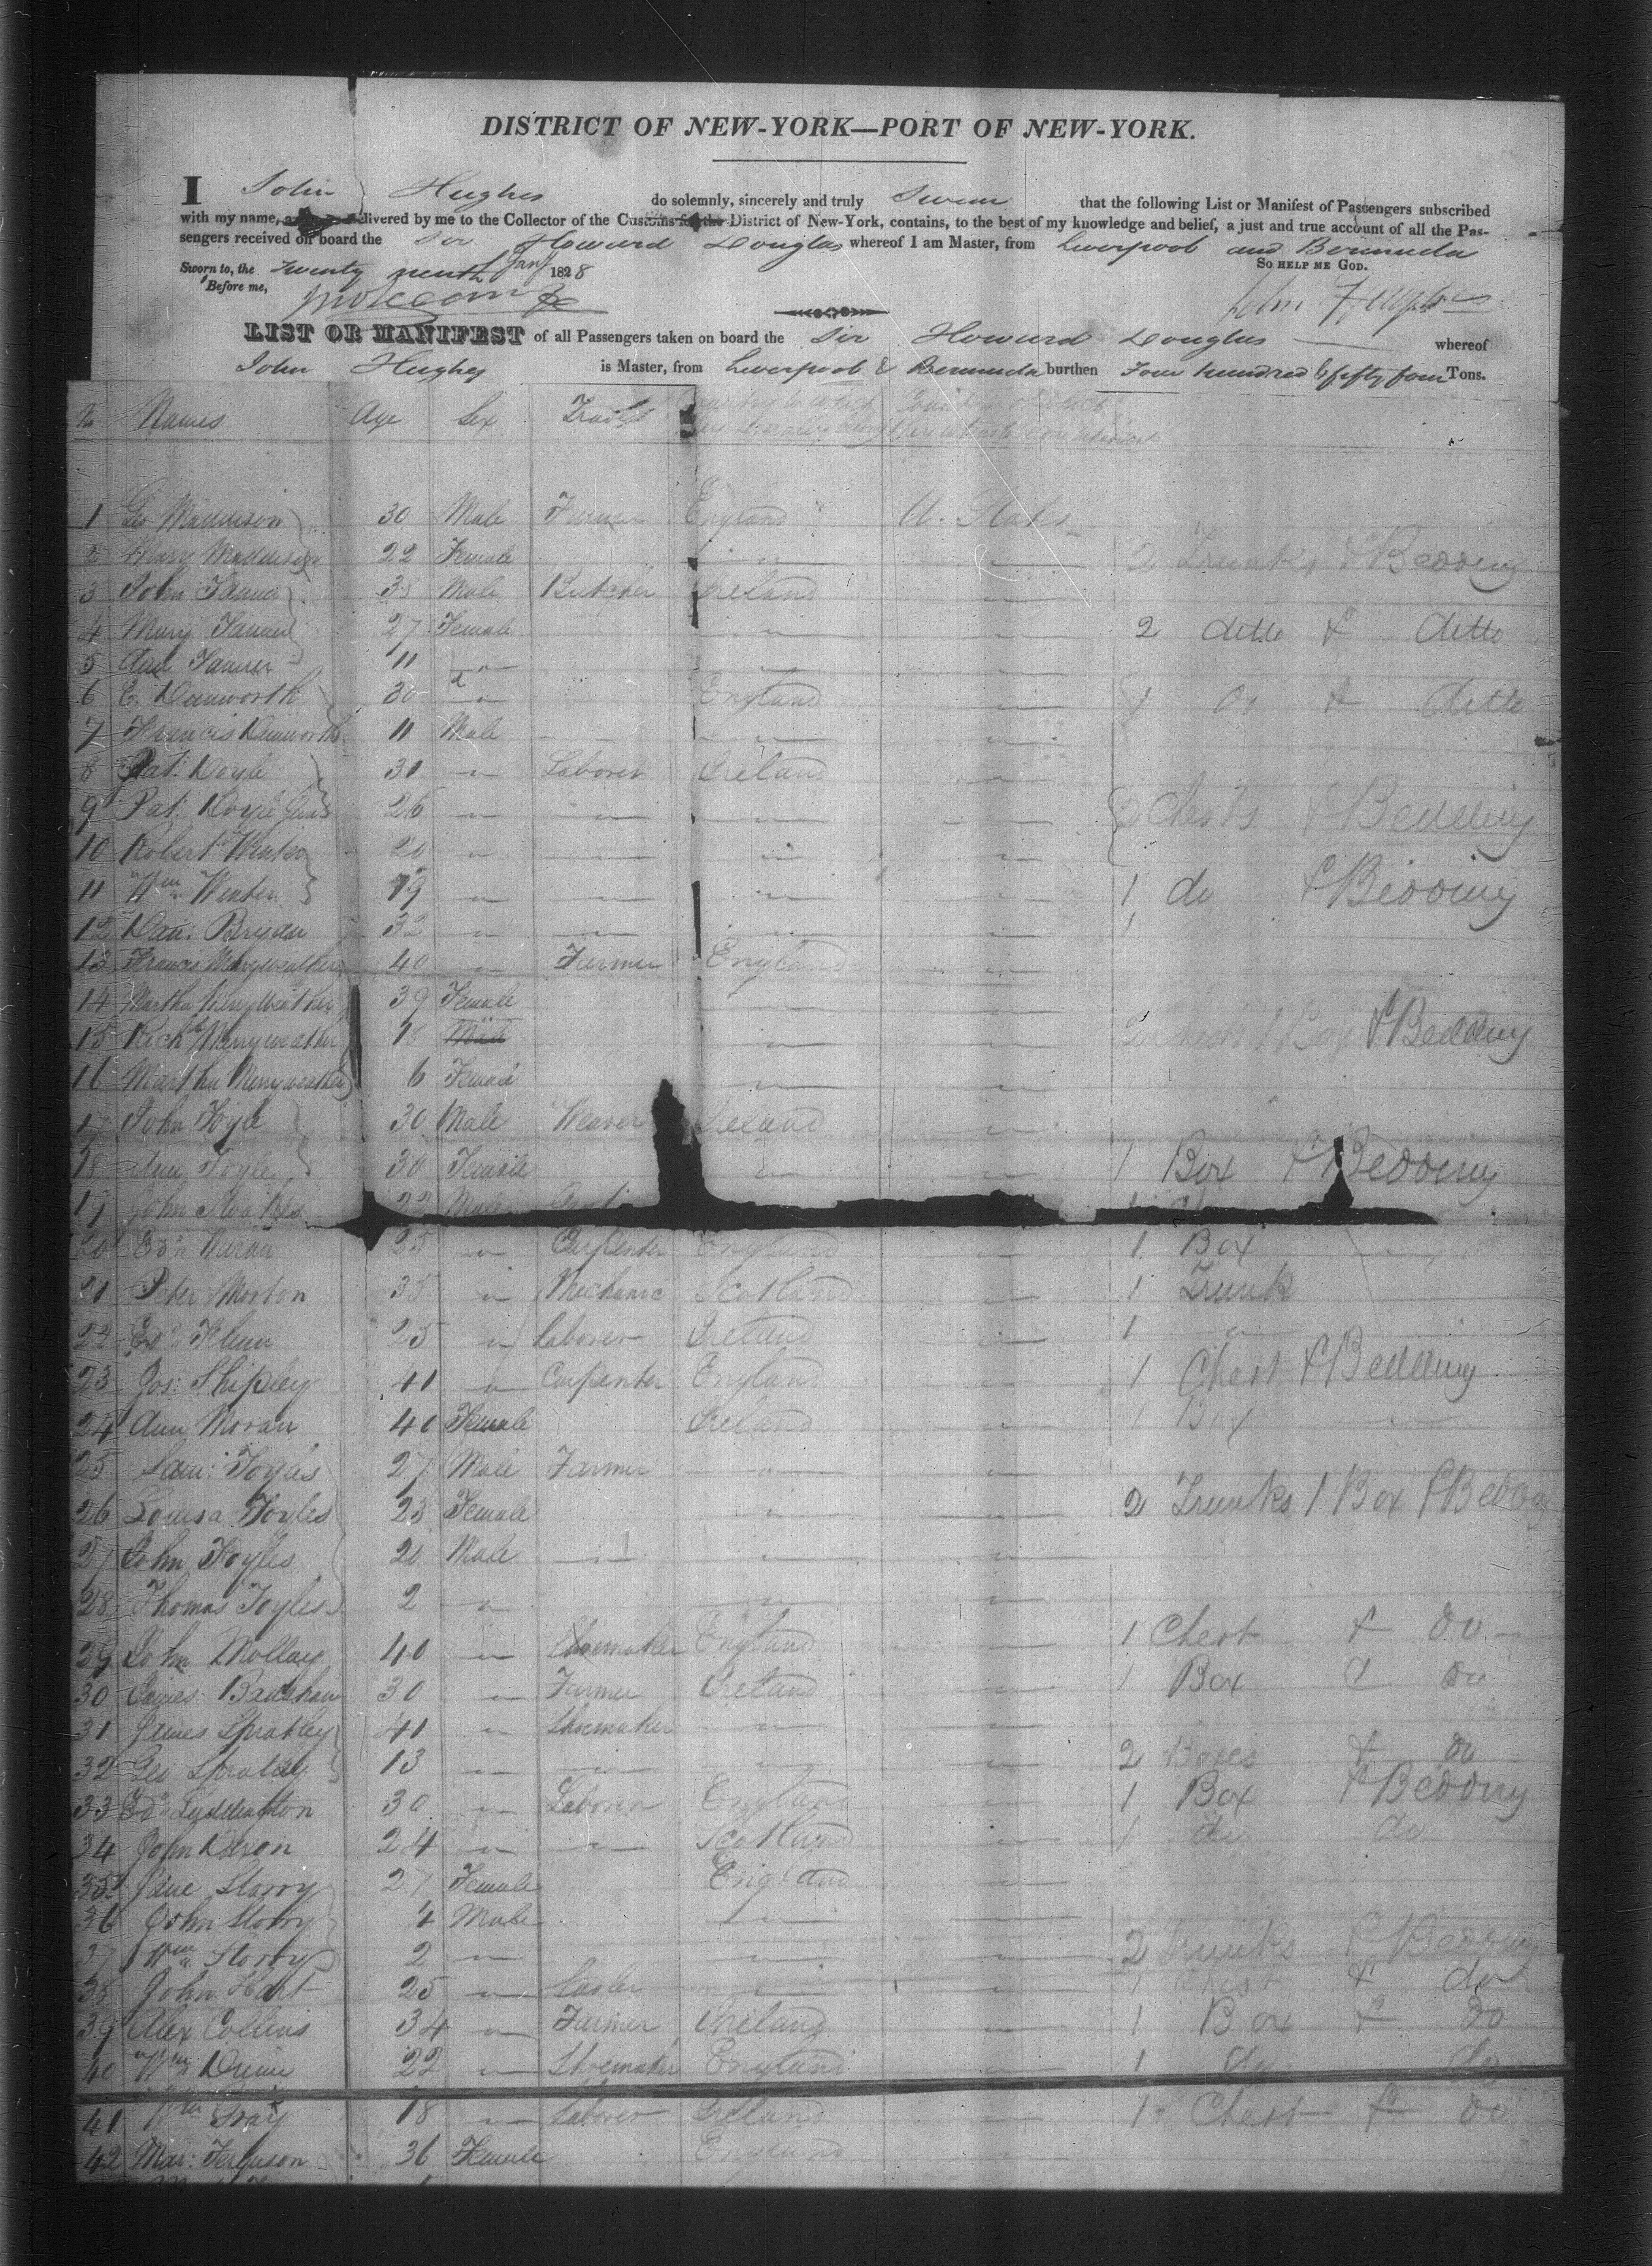 DISTRICT OF NEW-YORK—PORT OF NEW-YORK.
I John Hughes do solemnly, sincerely and truly Swear that the following List or Manifest of Passengers subscribed
with my name, delivered by me to the Collector of the Customs for the District of New-York, contains, to the best of my knowledge and belief, a just and true account of all the Pas-
sengers received on board the Sir Howard Douglas whereof I am Master, from Liverpool and Bermuda
Sworn to, the Twenty ninth Jany 1828 SO HELP ME GOD.
Before me, John Hughes
LIST OR MANIFEST of all Passengers taken on board the Sir Howard Douglas whereof
John Hughes is Master, from Liverpool & Bermuda burthen Four hundred & fifty four Tons.
No Names Age Sex Trades Country to which they severally belong Country of which they intend to become inhabitants
1 Geo Maddison 30 Male Farmer England U. States
2 Mary Maddison 22 Female " " 2 Trunks & Bedding
3 John Tanner 38 Male Butcher Ireland "
4 Mary Tanner 27 Female " " 2 ditto & ditto
5 Ann Tanner 11 " " "
6 E. Danworth 30 " England " 1 do & ditto
7 Francis Danworth 11 Male " "
8 Pat: Doyle 30 " Laborer Ireland "
9 Pat: Doyle Junr 26 " " " " 2 Chests & Bedding
10 Robert Winter 20 " " " "
11 Wm Winter 19 " " " " 1 do & Bedding
12 Dan: Bryan 32 " " " " 1
13 Francis Merryweather 40 " Farmer England "
14 Martha Merryweather 39 Female " "
15 Richd Merryweather 18 Male " " 2 Chests 1 Box & Bedding
16 Martha Merryweather 6 Female " "
17 John Foyle 30 Male Weaver Ireland "
18 Ann Foyle 30 Female " " 1 Box & Bedding
19 John Stoakes 22 Male
20 Edwd 25 " Carpenter England " 1 Box "
21 Peter Morton 35 " Mechanic Scotland " 1 Trunk
22 Edwd Flinn 25 " Laborer Ireland " 1 "
23 Jos: Shipley 41 " Carpenter England " 1 Chest & Bedding
24 Ann Moran 40 Female Ireland " 1 Box "
25 Sam: Foyles 27 Male Farmer " "
26 Louisa Foyles 23 Female " " 2 Trunks 1 Box & Bedding
27 John Foyles 20 Male " " "
28 Thomas Foyles 2 " " "
29 John Mollay 40 " Shoemaker England " 1 Chest & do
30 James 30 " Farmer Ireland " 1 Box & do
31 James Spratley 41 " Shoemaker " "
32 Geo Spratley 13 " " " " 2 Boxes & do
33 Edwd 30 " Laborer England " 1 Box & Bedding
34 John Dixon 24 " " Scotland " 1 do do
35 Jane Storry 27 Female England "
36 John Storry 4 Male " "
37 Wm Storry 2 " " " 2 Trunks & Bedding
38 John Hart 25 " " " 1 Chest & do
39 Alex Collins 34 " Farmer Ireland " 1 Box & do
40 Wm 22 " Shoemaker England " 1 do do
41 Wm Gray 18 " Laborer Ireland " 1 Chest & do
42 Mar: Ferguson 36 Female England "